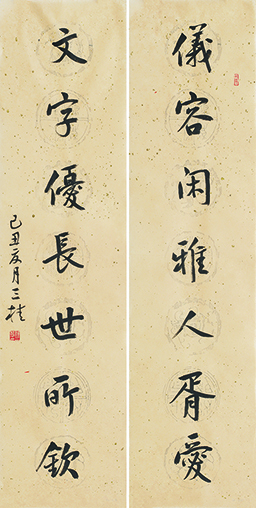 儀容闲雅人胥愛
文字優長世所欽
己丑
月三